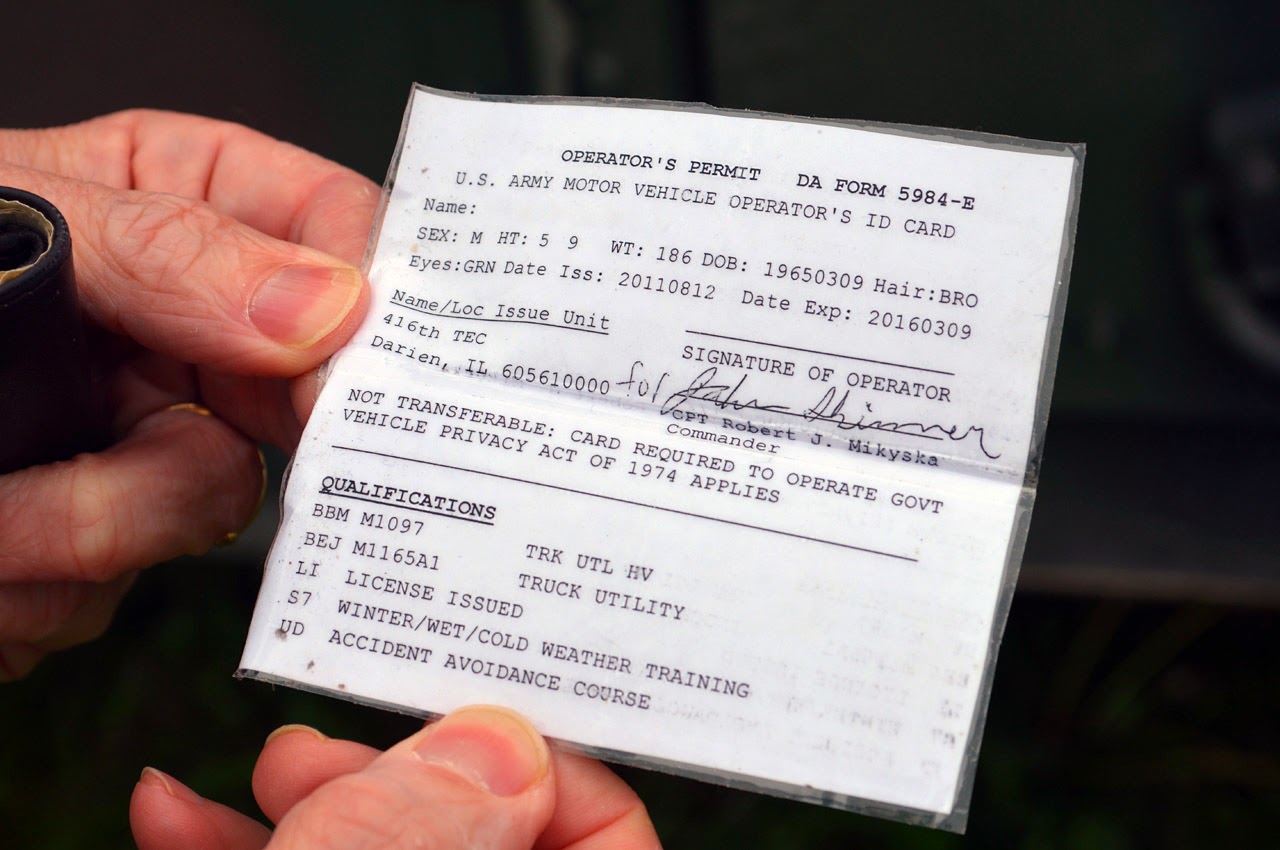 OPERATOR'S PERMIT DA FORM 5984-E
U.S. ARMY MOTOR VEHICLE OPERATOR'S ID CARD
Name:
SEX: M HT: 5 9 WT: 186 DOB: 19650309 Hair:BRO
Eyes:GRN Date Iss: 20110812 Date Exp: 20160309
Name/Loc Issue Unit
416th TEC
Darien, IL 605610000
SIGNATURE OF OPERATOR
for John Skinner
CPT Robert J. Mikyska
Commander
NOT TRANSFERABLE: CARD REQUIRED TO OPERATE GOVT
VEHICLE PRIVACY ACT OF 1974 APPLIES
QUALIFICATIONS
BBM M1097 TRK UTL HV
BEJ M1165A1 TRUCK UTILITY
LI LICENSE ISSUED
S7 WINTER/WET/COLD WEATHER TRAINING
UD ACCIDENT AVOIDANCE COURSE